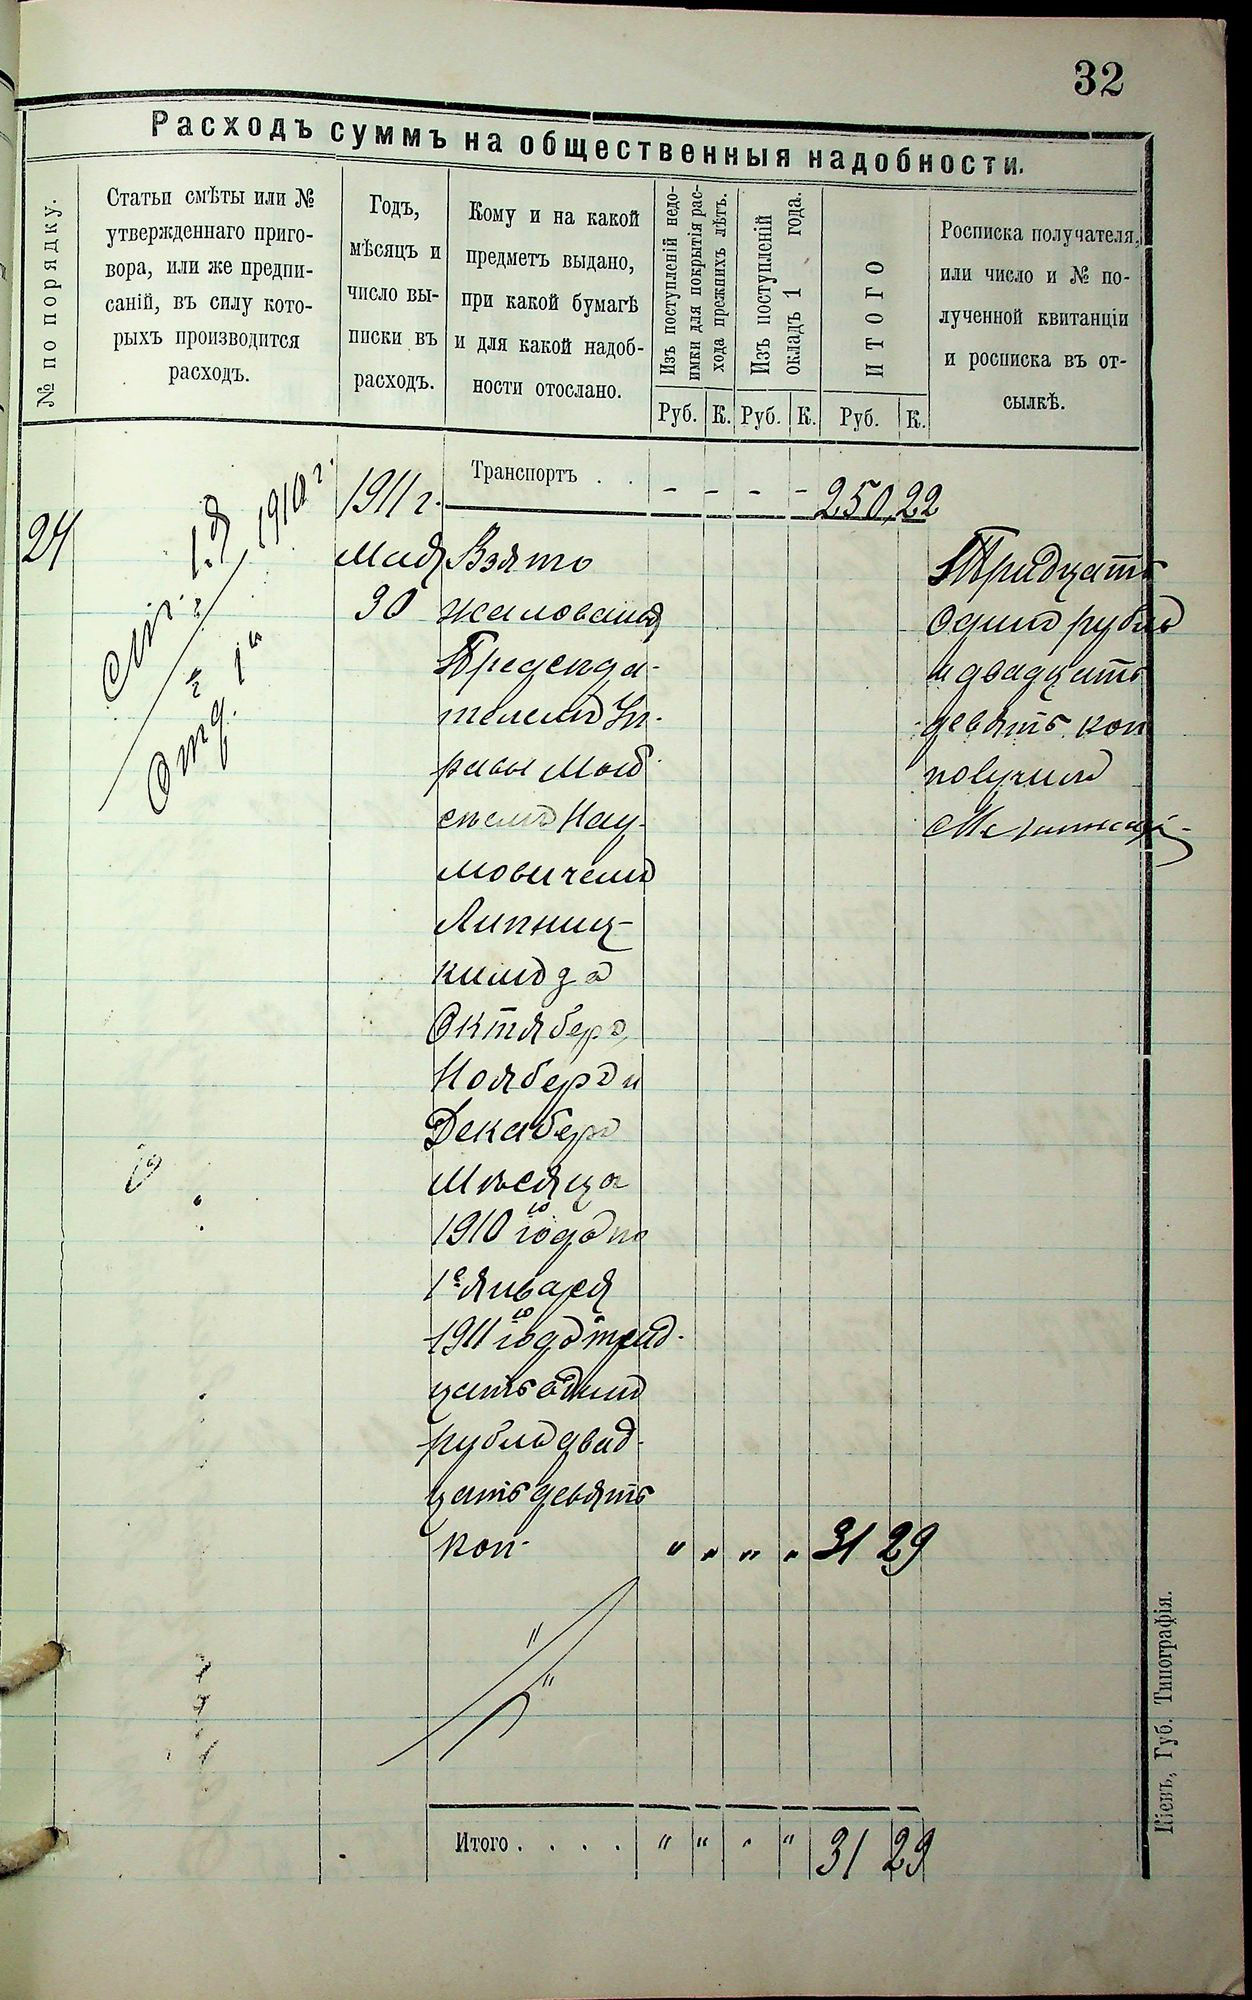 32
Расходъ суммъ на общественныя надобности.
№ по порядку.
Статьи смѣты или №
утвержденнаго приго-
вора, или же предпи-
саній, въ силу кото-
рыхъ производится
расходъ.
Годъ,
мѣсяцъ и
число вы-
писки въ
расходъ.
Кому и на какой
предметъ выдано,
при какой бумагѣ
и для какой надоб-
ности отослано.
Изъ поступленій недо-
имки для покрытія рас-
хода прежнихъ лѣтъ.
Изъ поступленій
окладъ 1 года.
ИТОГО
Росписка получателя,
или число и № по-
лученной квитанціи
и росписка въ от-
сылкѣ.
Руб. К. Руб. К. Руб. К.
Транспортъ . . - - - - 250 22
24
Ст. 1.я 1910 г.
Отд. 1й
1911 г.
Мая
30
Взято
жалованья
Предсѣда-
телемъ Уп-
равы Мои-
сеемъ Нау-
мовичемъ
Липниц-
кимъ за
Октябрь,
Ноябрь и
Декабрь
Мѣсяца
1910 года по
1е Января
1911 года трид-
цать одинъ
рубль двад-
цать девять
коп. " " " " 31 29
Тридцать
один рубль
и двадцать
девять коп
получилъ
М. Липницкій
Итого . . . . " " " " 31 29
Кіевъ, Губ. Типографія.